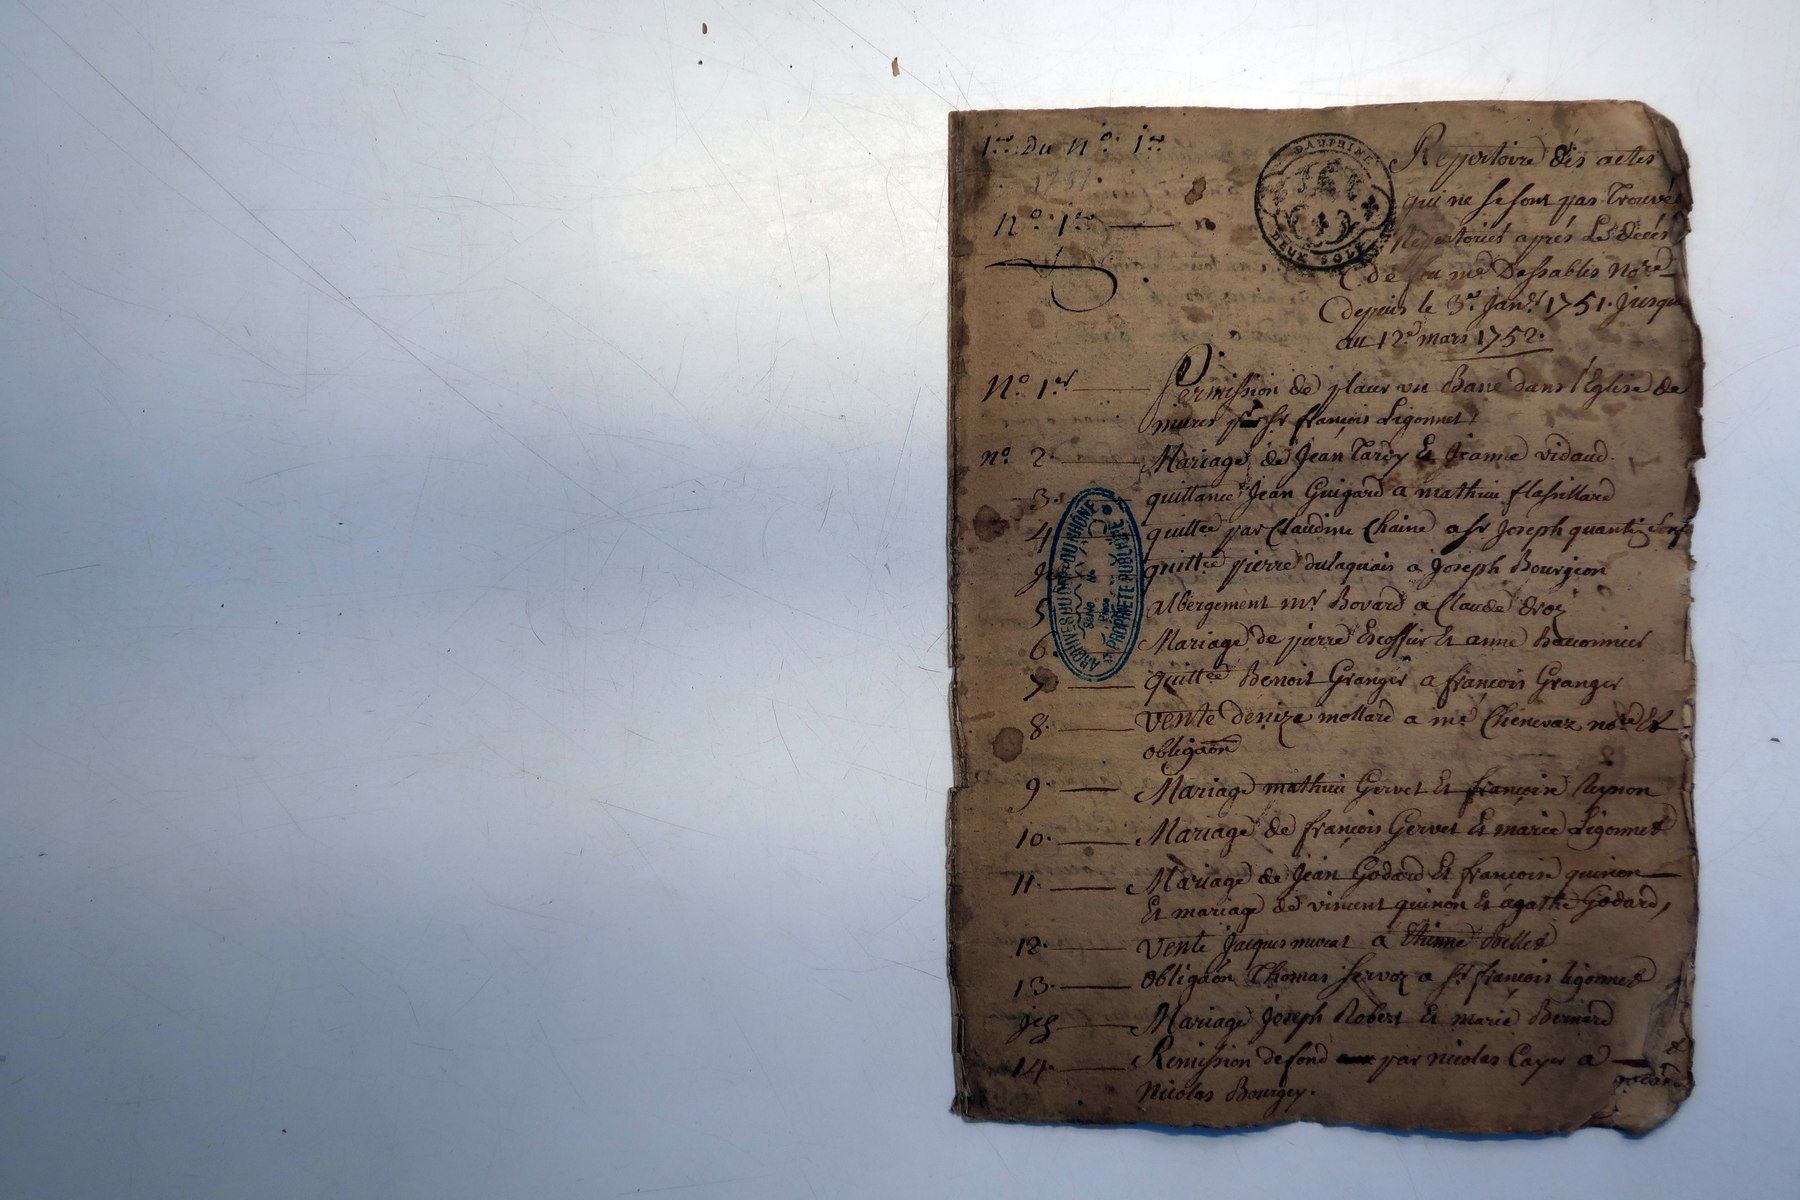 1er. Du N.o 1er
1751.
N.o 1er
DAUPHINÉ
DEUX SOLS
Repertoire des actes
qui ne se sont pas Trouvés
Repertoriés aprés Le decés
de feu me Dessables No.re
depuis le 3.e Jan.er 1751. jusqu
au 12.e mars 1752.
N.o 1er Permission de placer un Banc dans l'Eglise de
mures sr françois Ligonnet
n.o 2. Mariage de Jean Tardy Et Jeanne vidaud.
3. quittance Jean Guigard a mathieu flassillard
4 quitt.ce par Claudine Chaine a Sr Joseph quantin
quitt.ce pierre dulaquais a Joseph Bourgeon
5 albergement mr Bovard a Claude droz
6. Mariage de pierre Escoffier Et anne
7 quitt.ce Benoit Granger a françois Granger
8. Vente denize mollard a me Chenevaz no.re Et
obligaon
9 Mariage mathieu Gervet Et françoise Reynon
10. Mariage de françois Gervet Et marie Ligonnet
11. Mariage de Jean Godard Et françoise quinon
Et mariage de vincent quinon Et agathe Godard,
12. Vente Jacques murat a Etienne Bellet
13. obligaon Thomas Servoz a Sr françois ligonnet
Mariage Joseph Robert Et marie Bernard
14. Remission de fond par nicolas Cayer a
Nicolas Bourgey.
ARCHIVES DU DÉPt DU RHÔNE
PROPRIÉTÉ PUBLIQUE